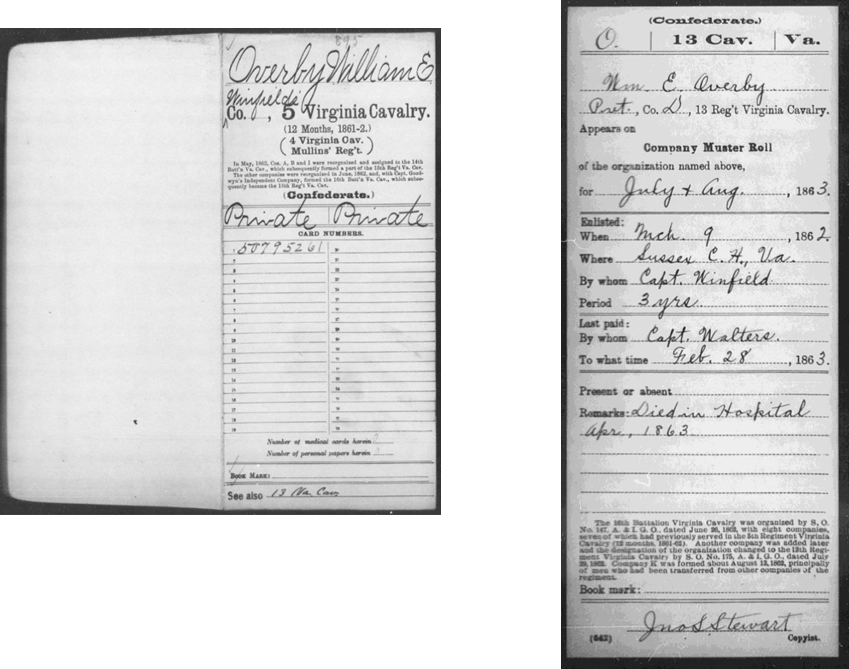 895
Overby William E
Winfield's
Co. , 5 Virginia Cavalry.
(12 Months, 1861-2.)
( 4 Virginia Cav. )
( Mullins' Reg't. )
In May, 1862, Cos. A, B and I were reorganized and assigned to the 14th
Batt'n Va. Cav., which subsequently formed a part of the 15th Reg't Va. Cav.
The other companies were reorganized in June, 1862, and, with Capt. Good-
wyn's Independent Company, formed the 16th Batt'n Va. Cav., which subse-
quently became the 13th Reg't Va. Cav.
(Confederate.)
Private | Private
CARD NUMBERS.
1 50795261
Number of medical cards herein
Number of personal papers herein
BOOK MARK:
See also 13 Va Cav
(Confederate.)
O. | 13 Cav. | Va.
Wm. E. Overby
Pvt., Co. D, 13 Reg't Virginia Cavalry.
Appears on
Company Muster Roll
of the organization named above,
for July & Aug. , 1863.
Enlisted:
When Mch. 9 , 1862.
Where Sussex C. H., Va.
By whom Capt. Winfield
Period 3 yrs.
Last paid:
By whom Capt. Walters.
To what time Feb. 28 , 1863.
Present or absent
Remarks: Died in Hospital
Apr., 1863
The 16th Battalion Virginia Cavalry was organized by S. O.
No. 147, A. & I. G. O., dated June 26, 1862, with eight companies,
seven of which had previously served in the 5th Regiment Virginia
Cavalry (12 months, 1861-62). Another company was added later
and the designation of the organization changed to the 13th Regi-
ment Virginia Cavalry by S. O. No. 175, A. & I. G. O., dated July
29, 1862. Company K was formed about August 12, 1862, principally
of men who had been transferred from other companies of the
regiment.
Book mark:
Jno S Stewart
(642) Copyist.